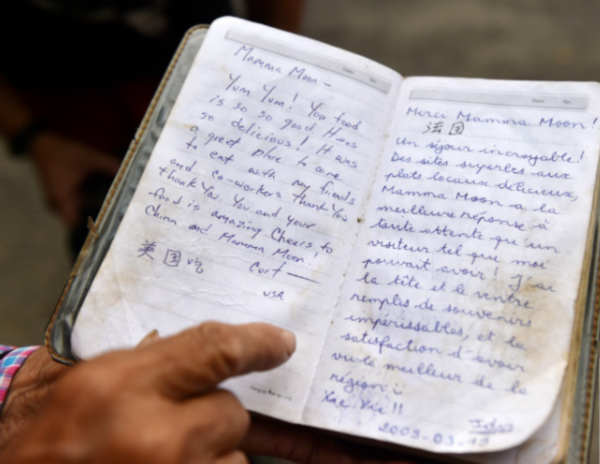 Mamma Moon –
Yum Yum! You food
is so so good It was
so delicious! It was
a great place to come
to eat with my friends
and co-workers thank You
thank You. You and your
food is amazing Cheers to
China and Mamma Moon!
Curt
英国
USA
Merci Mamma Moon!
法国
Un séjour incroyable!
Des sites superbes aux
plats locaux délicieux,
Mamma Moon a la
meilleure réponse à
toute attente que un
visiteur tel que moi
pouvait avoir! J'ai
la tête et le ventre
remplis de souvenirs
impérissables, et la
satisfaction d'avoir
vu le meilleur de la
région
Xie Xie!!